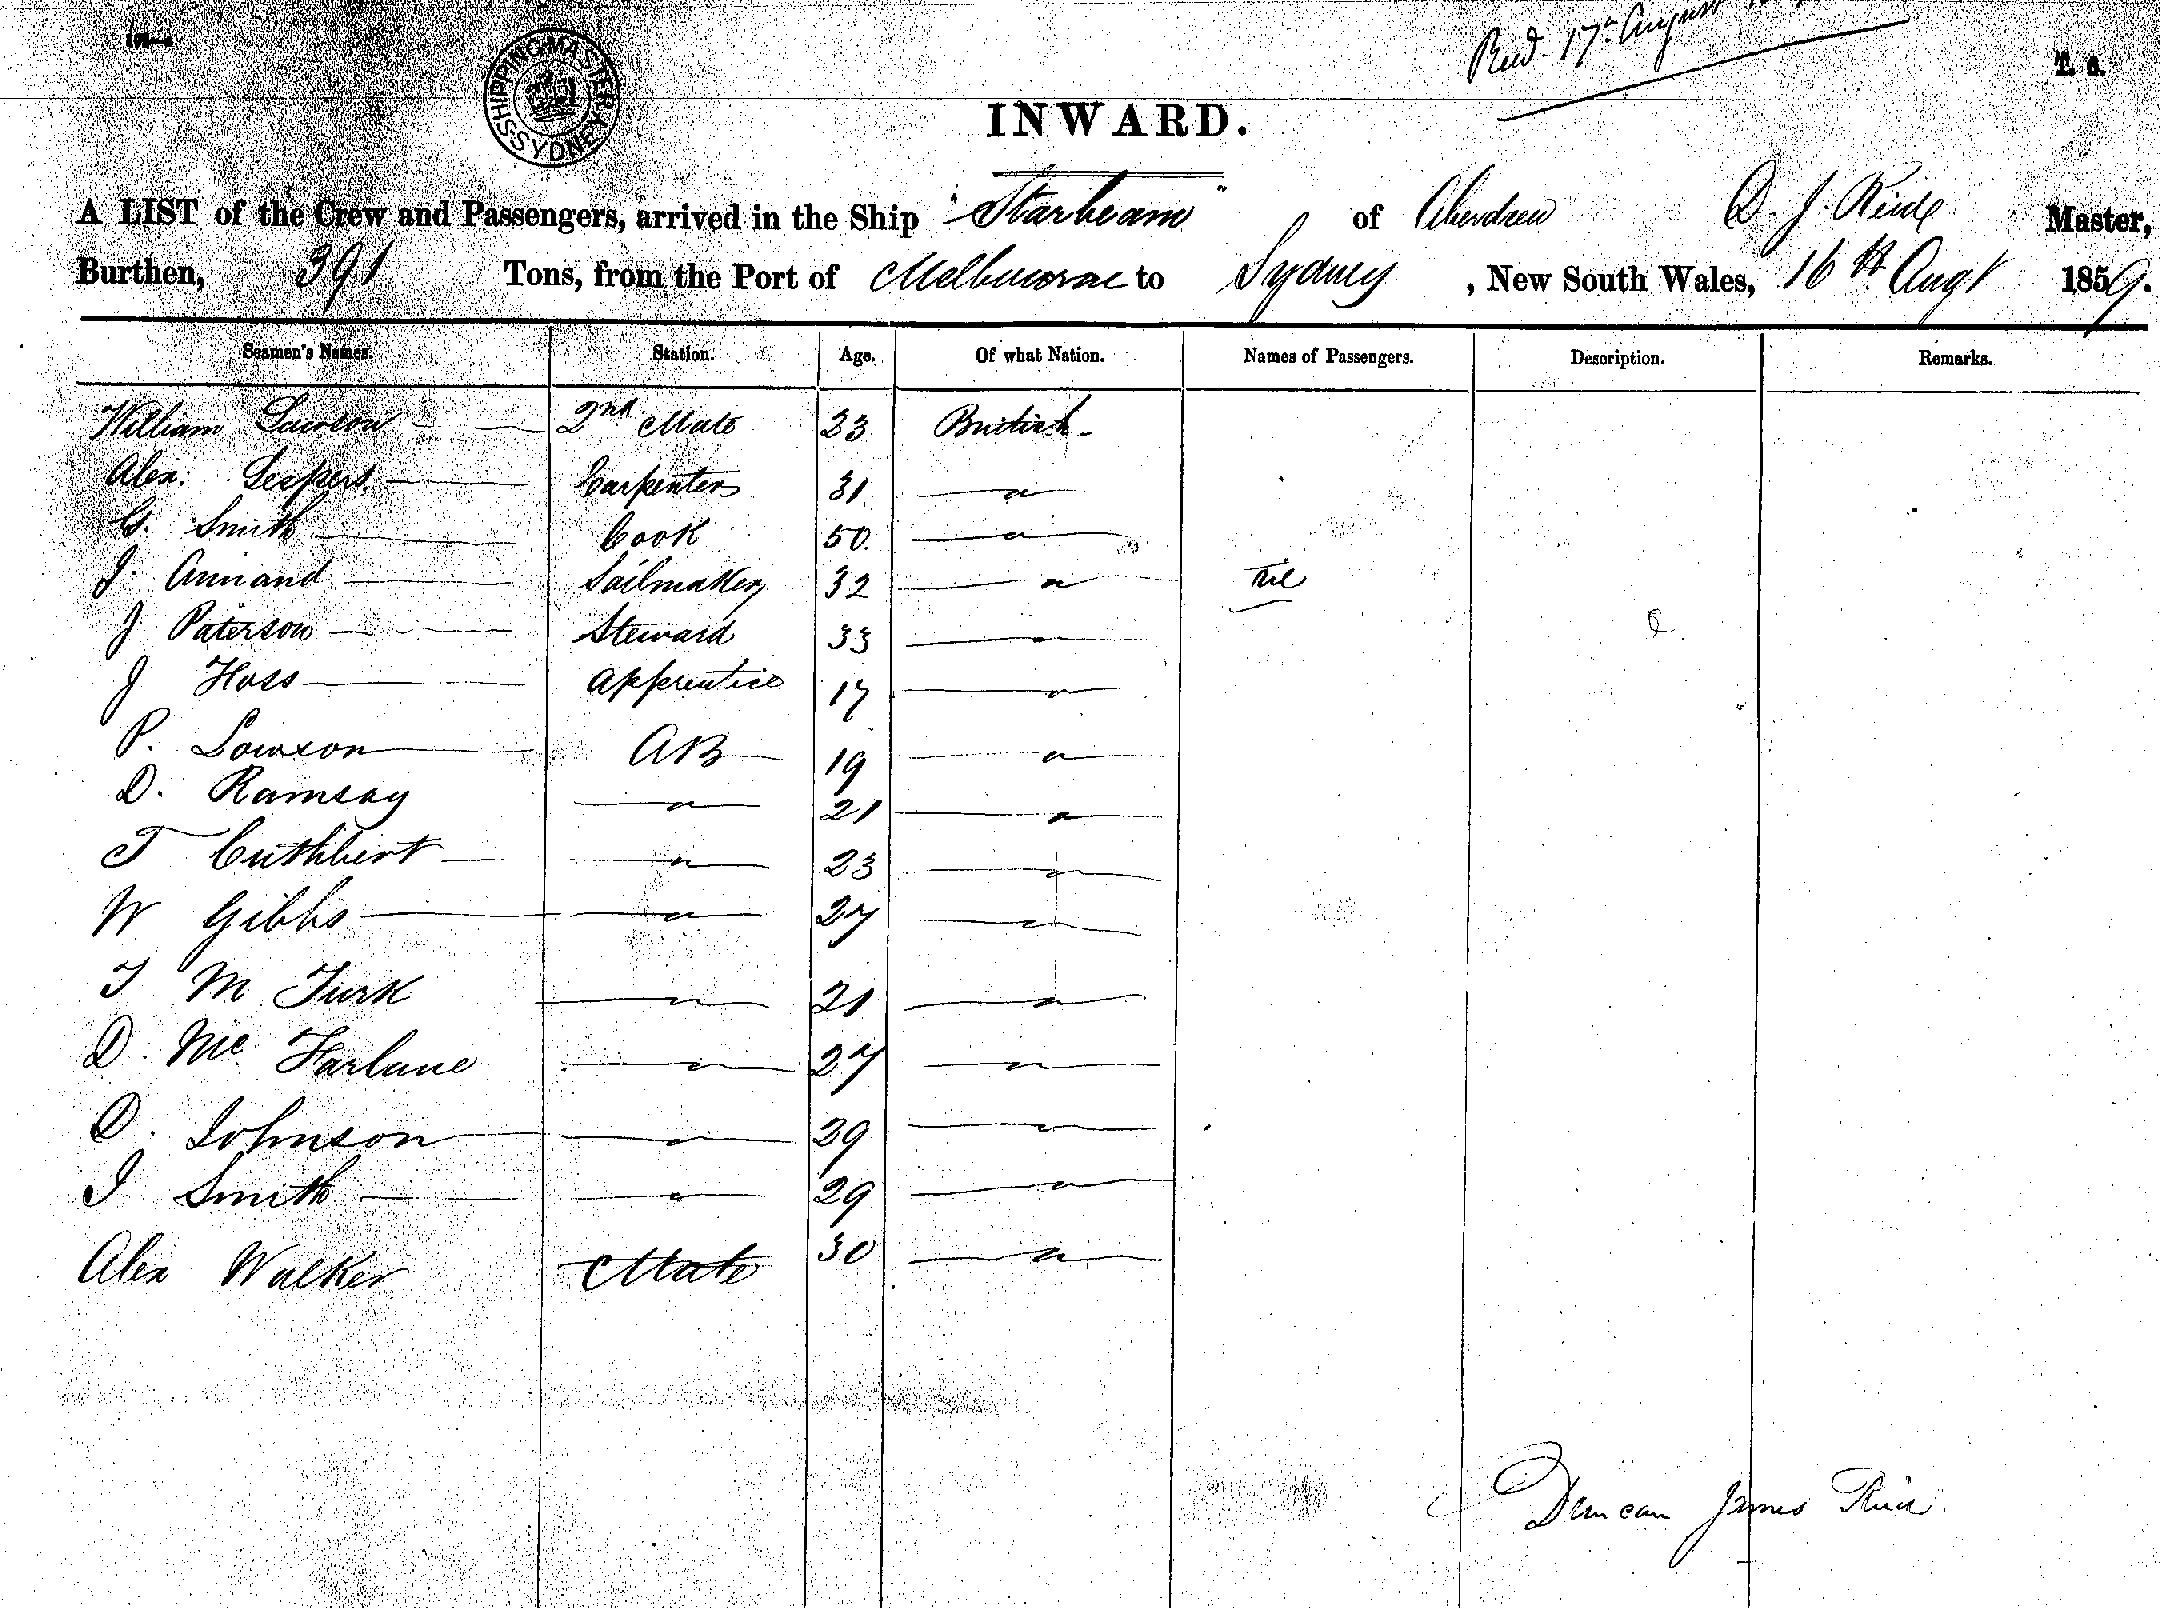 Recd. 17th August
T. S.
SHIPPING MASTERS SYDNEY
INWARD.
A LIST of the Crew and Passengers, arrived in the Ship "Starbeam" of Aberdeen D. J. Master,
Burthen, 391 Tons, from the Port of Melbourne to Sydney, New South Wales, 16th Augt 1859.
Seamen's Names. Station. Age. Of what Nation. Names of Passengers. Description. Remarks.
William Lawson 2nd Mate 23 British
Alex. Carpenter 31 "
G. Smith Cook 50 "
J. Annand Sailmaker 32 " Nil
J Paterson Steward 33 "
J Apprentice 17 "
P. Lawson AB 19 "
D. Ramsay " 21 "
T Cuthbert " 23 "
W Gibbs " 27 "
M Turk " 21 "
D. Mc Farlane " 27 "
D. Johnson " 29 "
Smith " 29 "
Alex Walker Mate 30 "
Duncan James